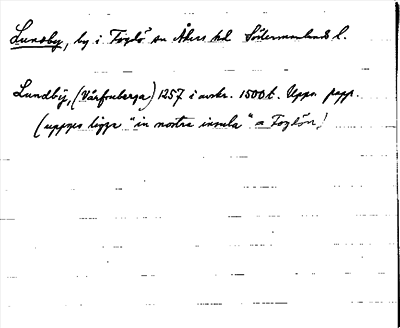 Lundby, by i Fogdö sn Åkers hd Södermanlands l.
Lundby, (Vårfruberga) 1257 i avskr. 1500t. Uppn papp.
(uppges ligga "in nostra insula" = Fogdön)